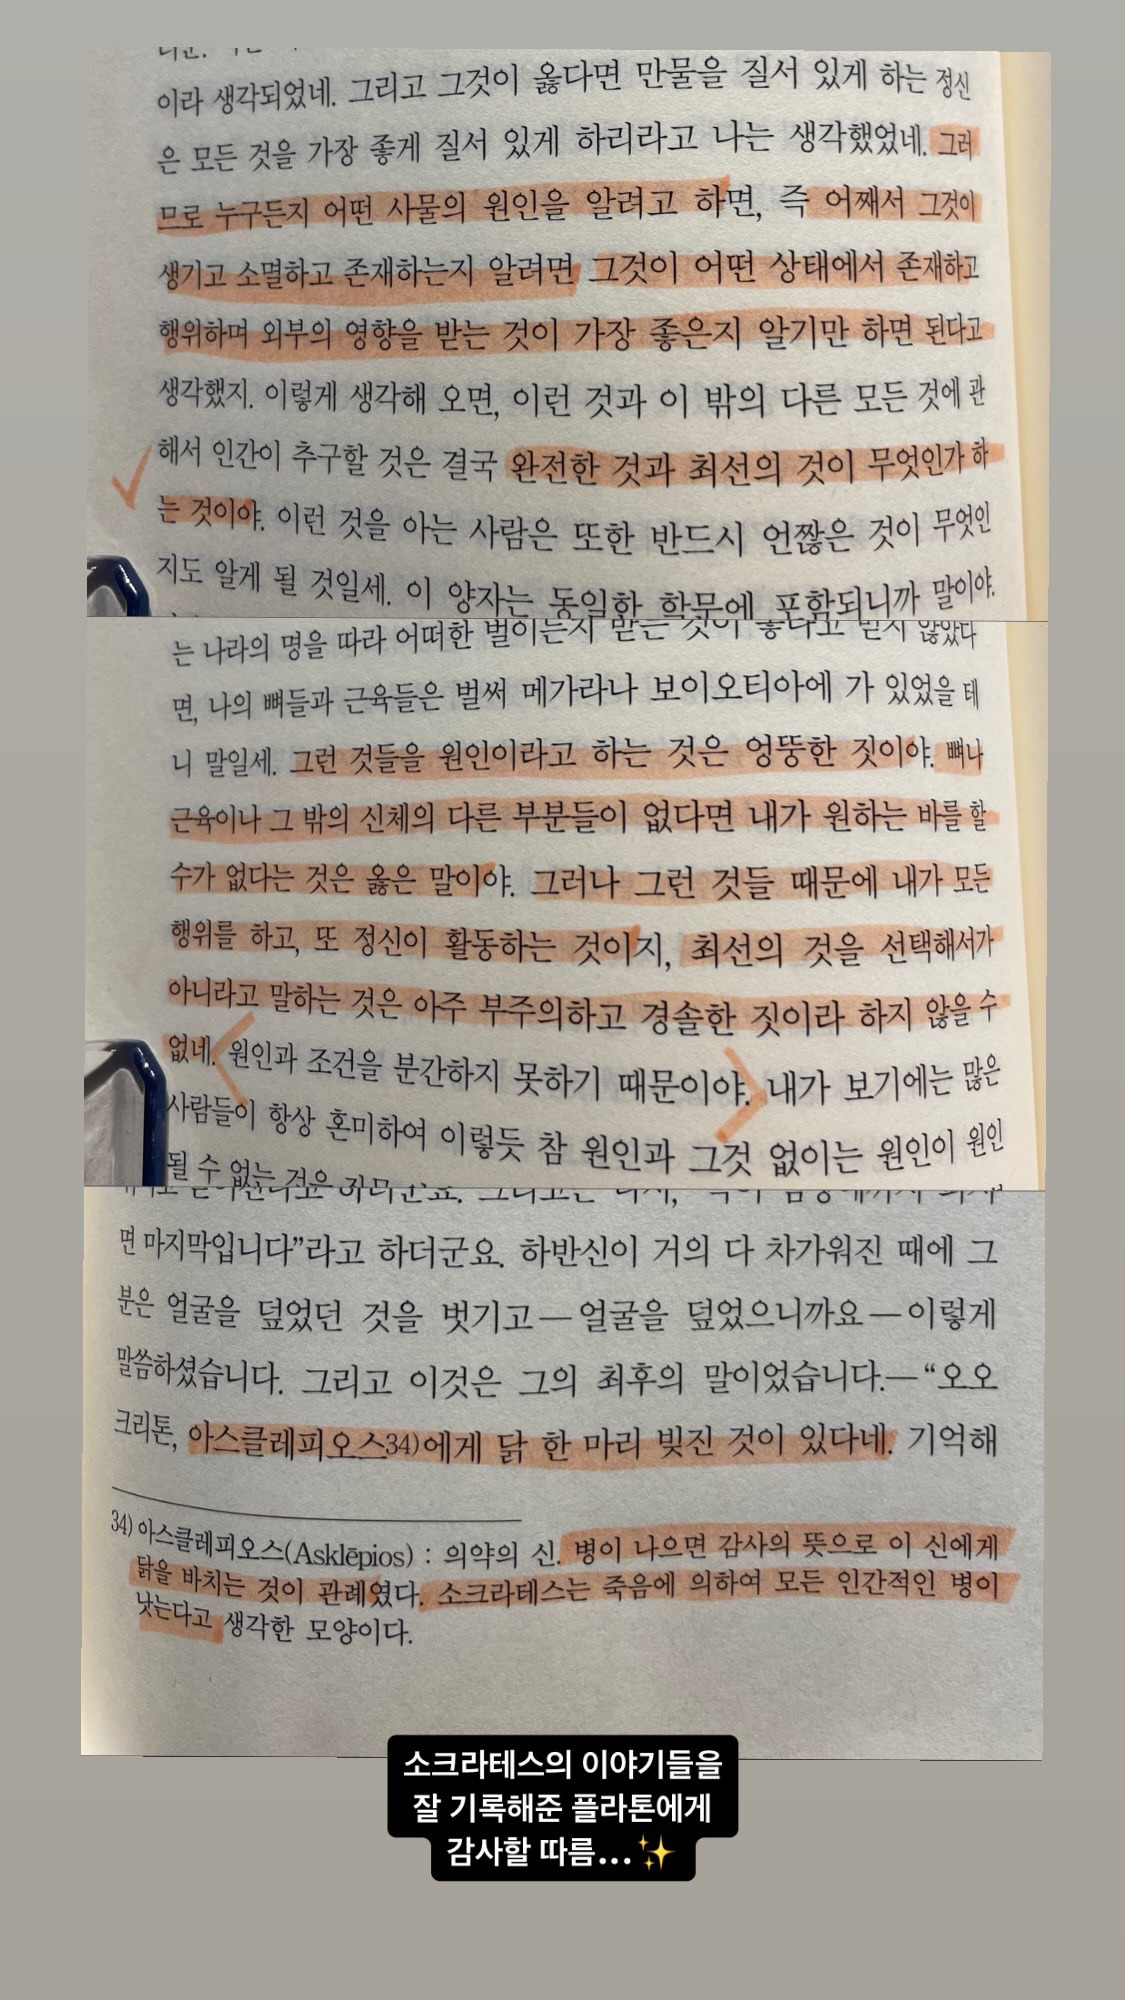 이라 생각되었네. 그리고 그것이 옳다면 만물을 질서 있게 하는 정신
은 모든 것을 가장 좋게 질서 있게 하리라고 나는 생각했었네. 그러
므로 누구든지 어떤 사물의 원인을 알려고 하면, 즉 어째서 그것이
생기고 소멸하고 존재하는지 알려면 그것이 어떤 상태에서 존재하고
행위하며 외부의 영향을 받는 것이 가장 좋은지 알기만 하면 된다고
생각했지. 이렇게 생각해 오면, 이런 것과 이 밖의 다른 모든 것에 관
해서 인간이 추구할 것은 결국 완전한 것과 최선의 것이 무엇인가 하
는 것이야. 이런 것을 아는 사람은 또한 반드시 언짢은 것이 무엇인
지도 알게 될 것일세. 이 양자는 동일한 학문에 포함되니까 말이야.
는 나라의 명을 따라 어떠한 벌이든지 받는 것이 좋다고 믿지 않았다
면, 나의 뼈들과 근육들은 벌써 메가라나 보이오티아에 가 있었을 테
니 말일세. 그런 것들을 원인이라고 하는 것은 엉뚱한 짓이야. 뼈나
근육이나 그 밖의 신체의 다른 부분들이 없다면 내가 원하는 바를 할
수가 없다는 것은 옳은 말이야. 그러나 그런 것들 때문에 내가 모든
행위를 하고, 또 정신이 활동하는 것이지, 최선의 것을 선택해서가
아니라고 말하는 것은 아주 부주의하고 경솔한 짓이라 하지 않을 수
없네. 원인과 조건을 분간하지 못하기 때문이야. 내가 보기에는 많은
사람들이 항상 혼미하여 이렇듯 참 원인과 그것 없이는 원인이 원인
될 수 없는 것은
면 마지막입니다”라고 하더군요. 하반신이 거의 다 차가워진 때에 그
분은 얼굴을 덮었던 것을 벗기고―얼굴을 덮었으니까요―이렇게
말씀하셨습니다. 그리고 이것은 그의 최후의 말이었습니다.―“오오
크리톤, 아스클레피오스34)에게 닭 한 마리 빚진 것이 있다네. 기억해
34) 아스클레피오스(Asklēpios) : 의약의 신. 병이 나으면 감사의 뜻으로 이 신에게
닭을 바치는 것이 관례였다. 소크라테스는 죽음에 의하여 모든 인간적인 병이
낫는다고 생각한 모양이다.
소크라테스의 이야기들을
잘 기록해준 플라톤에게
감사할 따름...✨